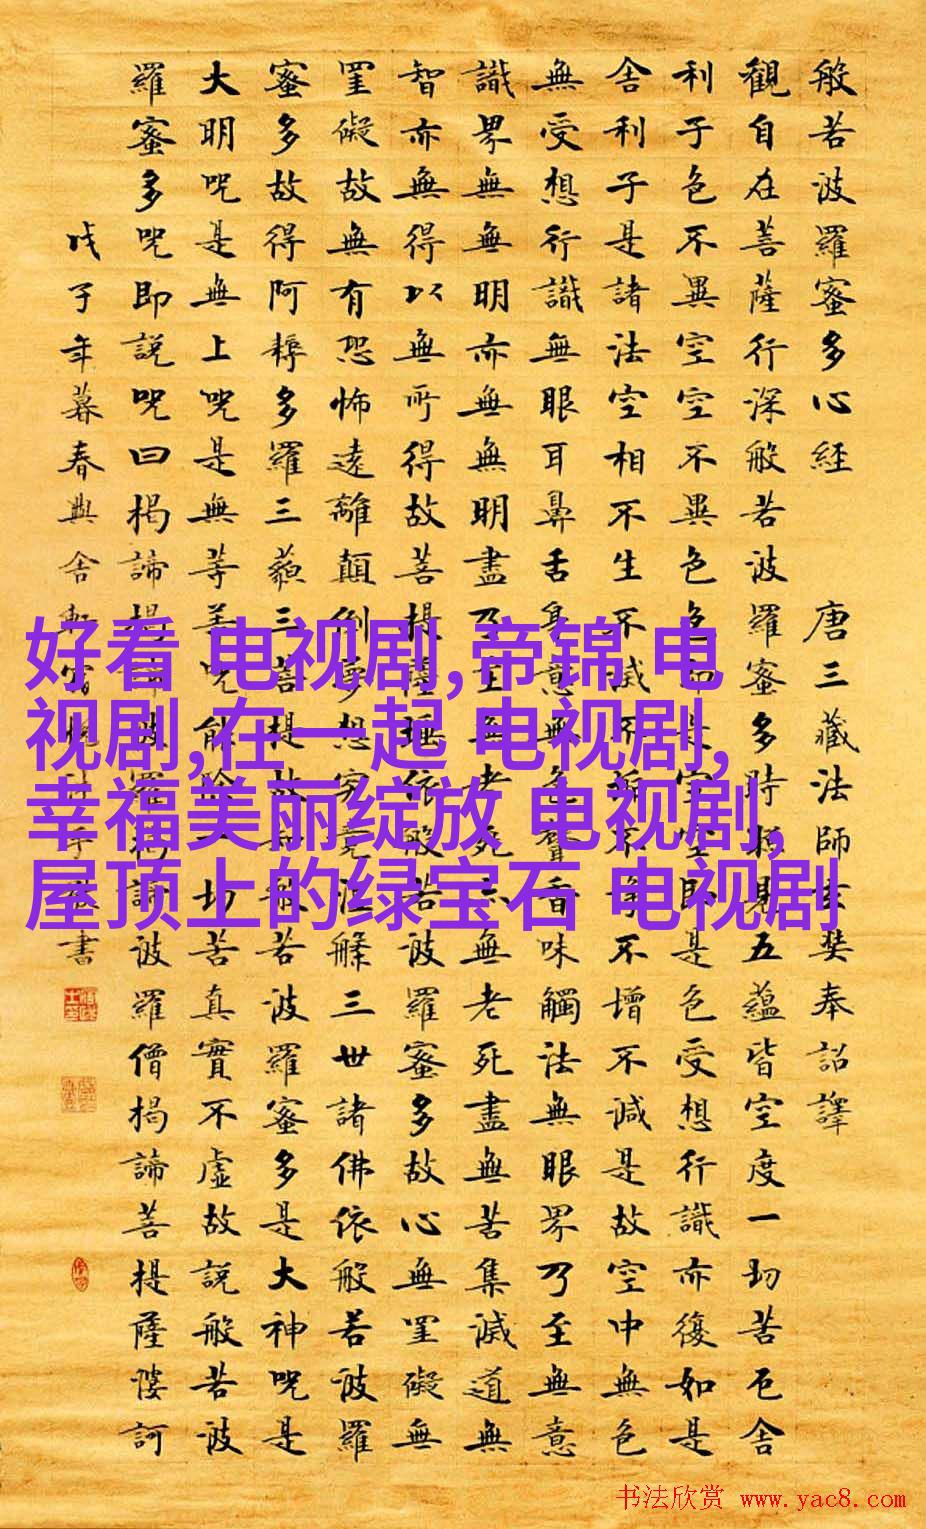 般若波羅蜜多心經 唐三藏法師玄奘奉詔譯
觀自在菩薩行深般若波羅蜜多時照見五蘊皆空度一切苦厄舍
利子色不異空空不異色色即是空空即是色受想行識亦復如是
舍利子是諸法空相不生不滅不垢不淨不增不減是故空中無色
無受想行識無眼耳鼻舌身意無色聲香味觸法無眼界乃至無意
識界無無明亦無無明盡乃至無老死亦無老死盡無苦集滅道無
智亦無得以無所得故菩提薩埵依般若波羅蜜多故心無罣礙無
罣礙故無有恐怖遠離顛倒夢想究竟涅槃三世諸佛依般若波羅
蜜多故得阿耨多羅三藐三菩提故知般若波羅蜜多是大神咒是
大明咒是無上咒是無等等咒能除一切苦真實不虛故說般若波
羅蜜多咒即說咒曰揭諦揭諦波羅揭諦波羅僧揭諦菩提薩婆訶
戊子年暮春 書
好看 电视剧,帝锦 电
视剧,在一起 电视剧,
幸福美丽绽放 电视剧,
屋顶上的绿宝石 电视剧
书法欣赏 www.yac8.com